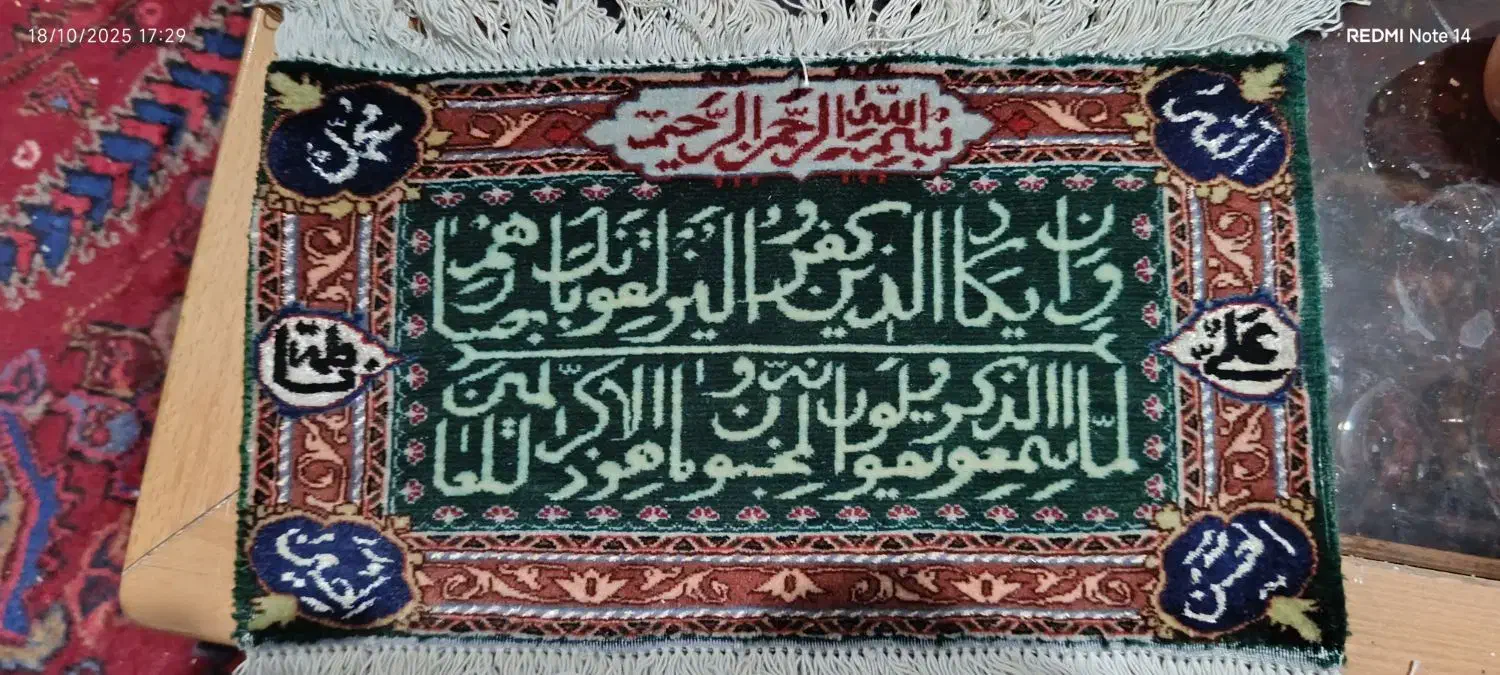 18/10/2025 17:29
REDMI Note 14
بسم الله الرحمن الرحيم
الله
محمد
وان يكاد الذين كفروا ليزلقونك بابصارهم
علی
فاطمة
لما سمعوا الذكر ويقولون انه لمجنون وما هو الا ذكر للعالمين
الحسن